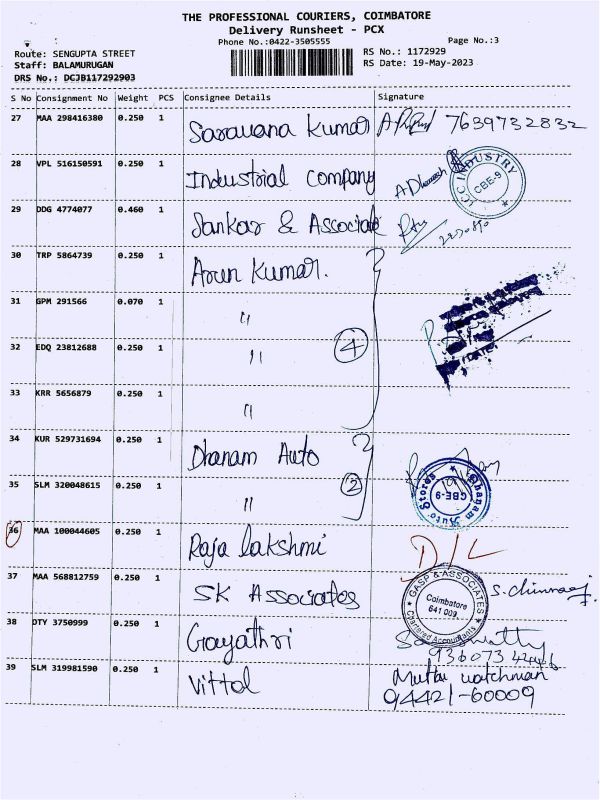 THE PROFESSIONAL COURIERS, COIMBATORE
Delivery Runsheet - PCX
Phone No.:0422-3505555 Page No.:3
Route: SENGUPTA STREET RS No.: 1172929
Staff: BALAMURUGAN RS Date: 19-May-2023
DRS No.: DCJB117292903
S No Consignment No Weight PCS Consignee Details Signature
27 MAA 298416380 0.250 1 Saravana Kumar 7639732832
28 VPL 516150591 0.250 1 Industrial Company
INDUSTRY CBE-9
29 DDG 4774077 0.460 1 Sankar & Associate
30 TRP 5864739 0.250 1 Arun Kumar.
31 GPM 291566 0.070 1 "
32 EDQ 23812688 0.250 1 " 4
33 KRR 5656879 0.250 1 "
34 KUR 529731694 0.250 1 Dhanam Auto
35 SLM 320048615 0.250 1 " 2
Dhanam Auto Stores CBE-9
36 MAA 100044605 0.250 1 Raja lakshmi D/L
37 MAA 568812759 0.250 1 SK Associates
GASP & ASSOCIATES
Coimbatore
641 009
Chartered Accountants
38 DTY 3750999 0.250 1 Gayathri
39 SLM 319981590 0.250 1 Vittal Muttu watchman
94421-60009